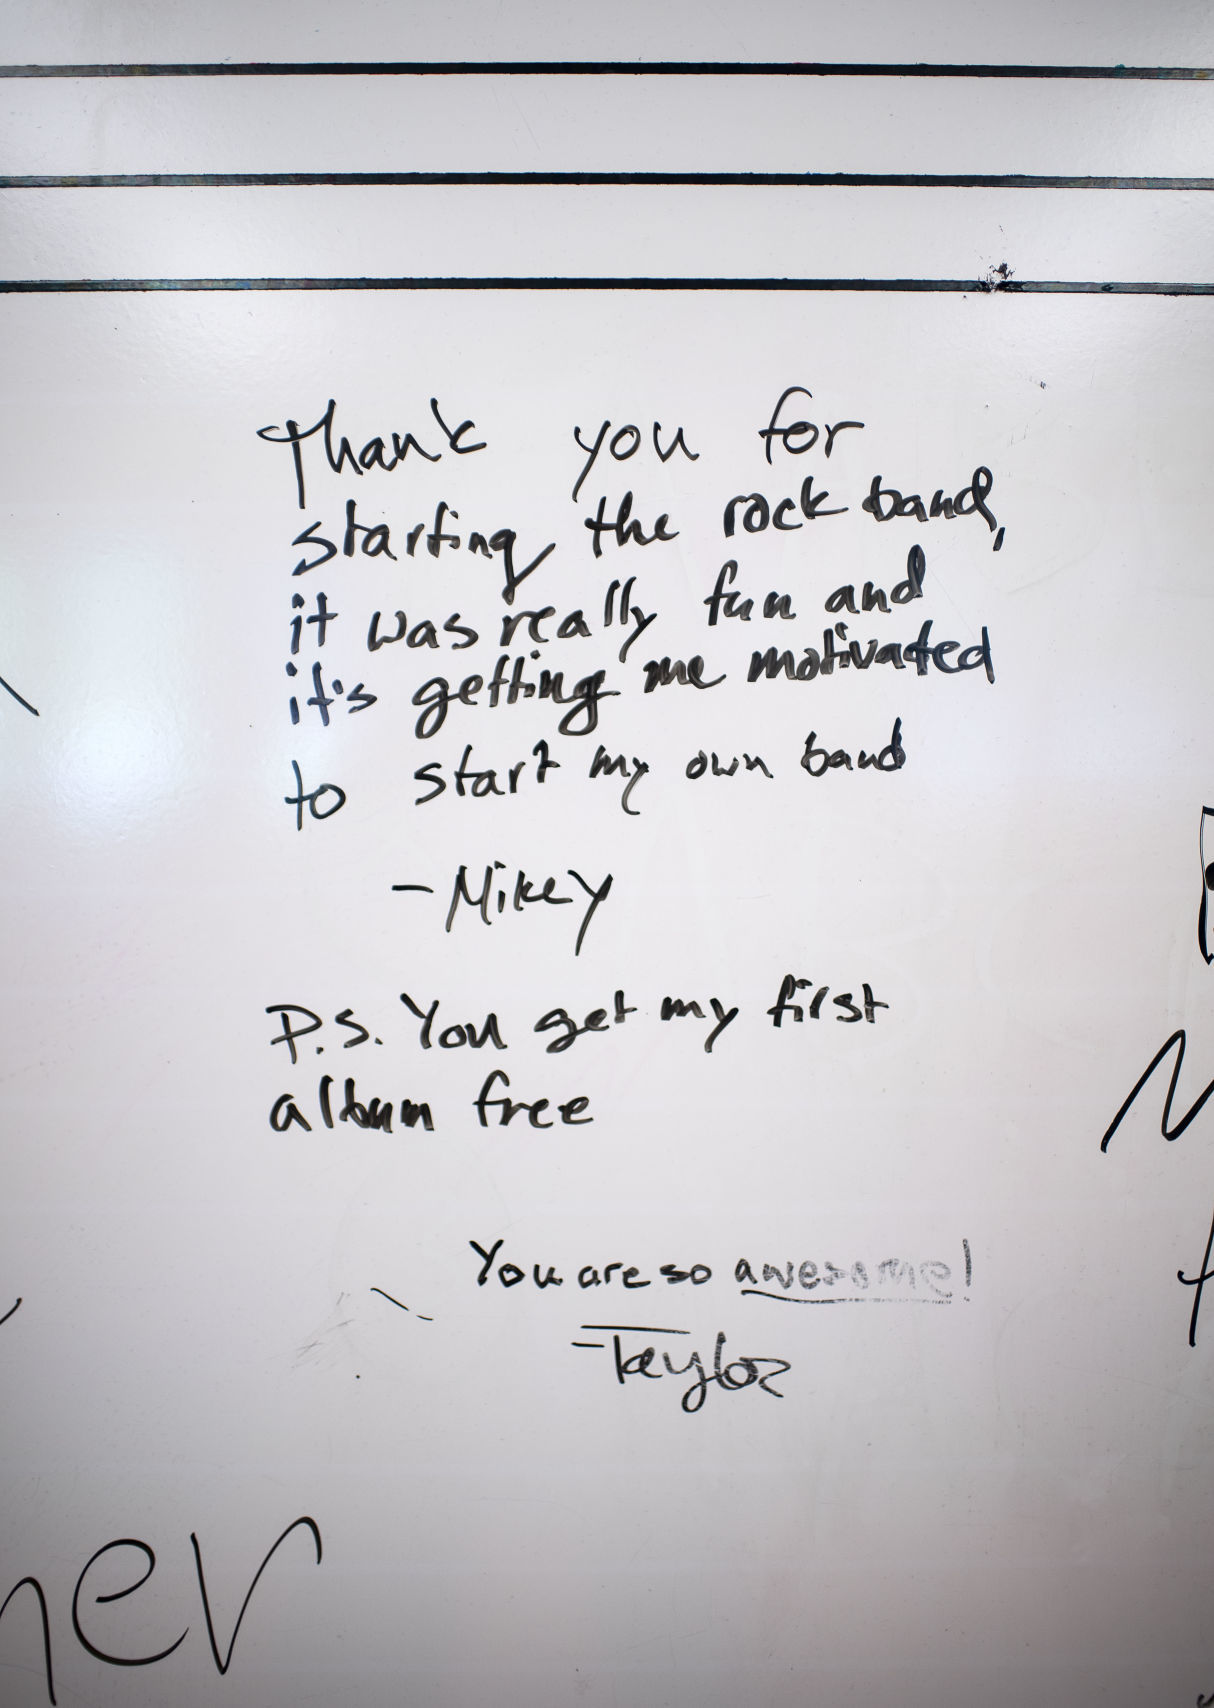 Thank you for
starting the rock band,
it was really fun and
it's getting me motivated
to start my own band
-Mikey
P.S. You get my first
album free
You are so awesome!
-Taylor